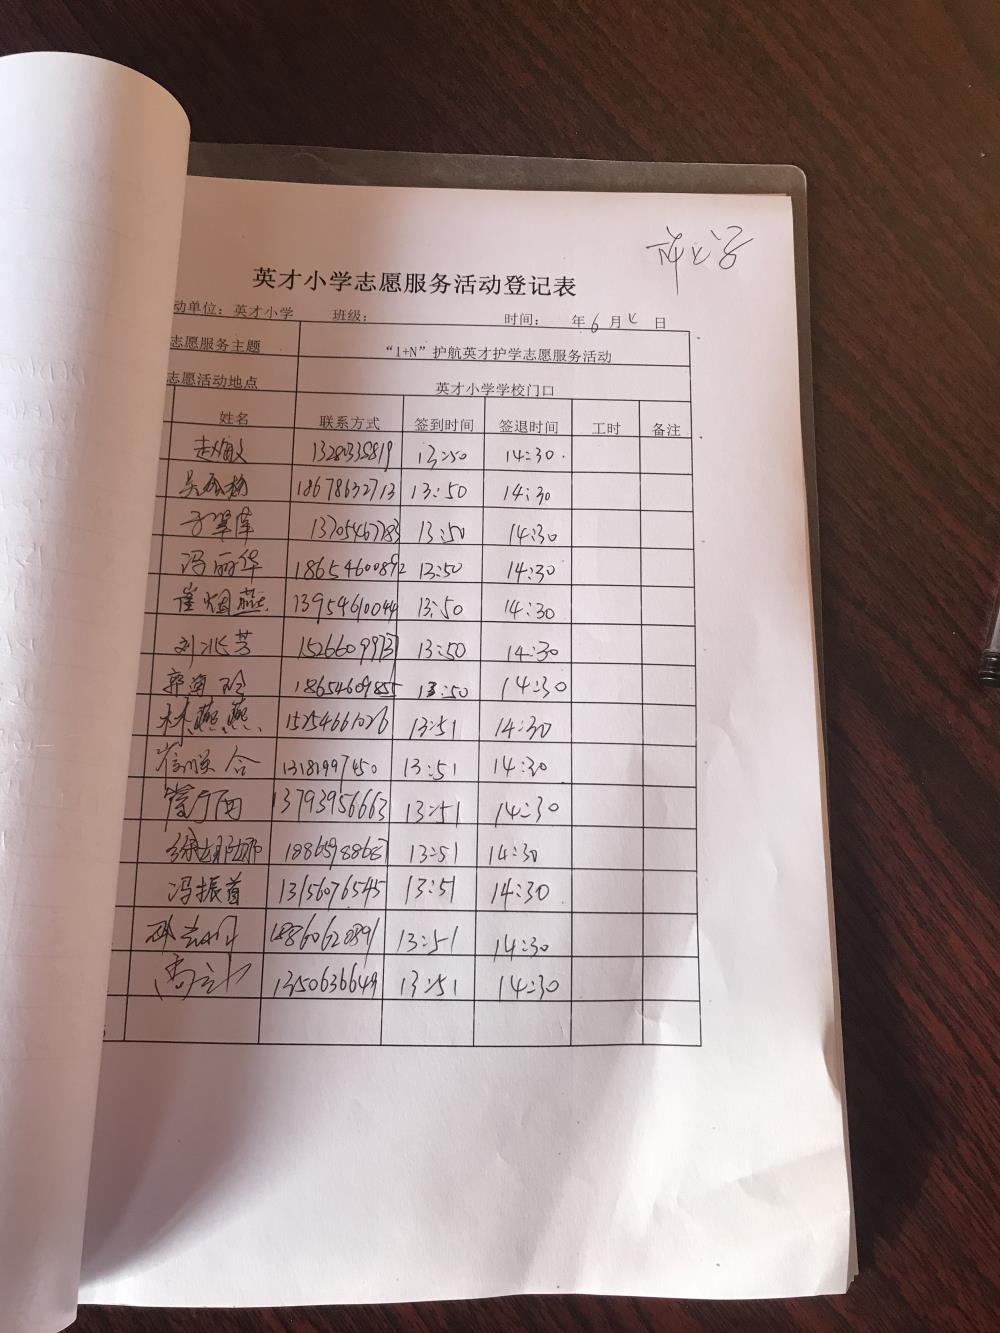 英才小学志愿服务活动登记表
动单位：英才小学 班级： 时间： 年6月 日
志愿服务主题 “1+N”护航英才护学志愿服务活动
志愿活动地点 英才小学学校门口
姓名 联系方式 签到时间 签退时间 工时 备注
赵敏 13280335819 13:50 14:30
18678632713 13:50 14:30
13705467783 13:50 14:30
冯丽华 18654600892 13:50 14:30
崔烟燕 13954610044 13:50 14:30
刘兆芳 15266099737 13:50 14:30
郭海玲 18654609855 13:50 14:30
林燕燕 15254661026 13:51 14:30
13181997450 13:51 14:30
13793956663 13:51 14:30
徐娜娜 13:51 14:30
冯振首 13156076545 13:51 14:30
18860620891 13:51 14:30
13:51 14:30